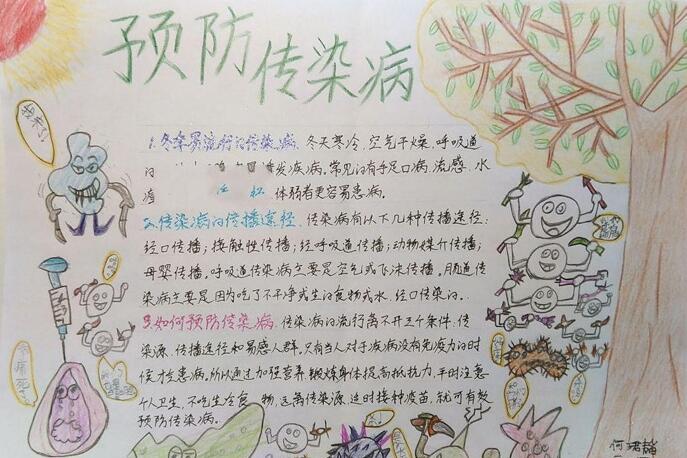 预防传染病
我来了
1.冬季易流行的传染病、冬天寒冷、空气干燥、呼吸道
发疾病,常见的有手足口病、流感、水
体弱者更容易患病。
2.传染病的传播途径、传染病有以下几种传播途径:
经口传播;接触性传播;经呼吸道传播;动物媒介传播;
母婴传播。呼吸道传染病主要是空气或飞沫传播。肠道传
染病主要是因为吃了不干净或生的食物或水、经口传染的。
3.如何预防传染病、传染病的流行离不开三个条件、传
染源、传播途径和易感人群。只有当人对于疾病没有免疫力的时
候才会患病。所以通过加强营养、锻炼身体提高抵抗力、平时注意
个人卫生、不吃生冷食物、远离传染源、适时接种疫苗、就可有效
预防传染病。